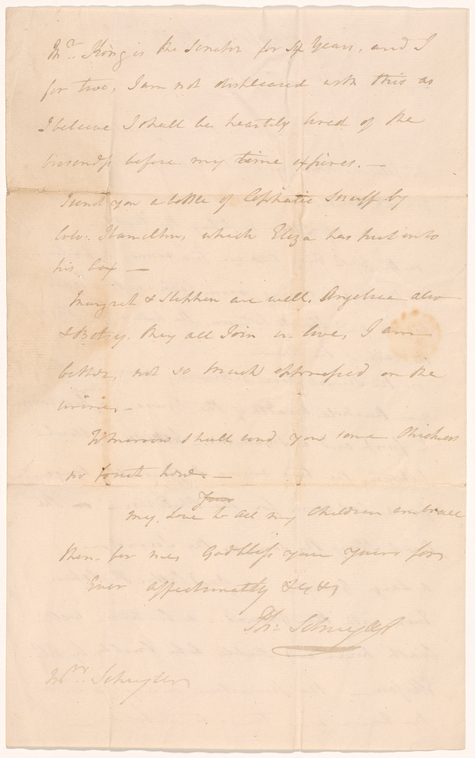 Mr. King is the Senator for Six Years, and I
for two, I am not displeased with this as
I believe I shall be heartily tired of the
before my time expires. —
I send you a bottle of Cephalic Snuff by
Colo. Hamilton, which Eliza has put into
his box —
Margret & Stephen are well, Angelica also
& Betsy. they all Join in love, I am
better, not so much oppressed on the
Tomorrow I shall send you some Chickens
no fourth
my love to all my Children embrace
them for me, God bless you yours for
Ever affectionately &c &c
Ph: Schuyler
Mrs. Schuyler